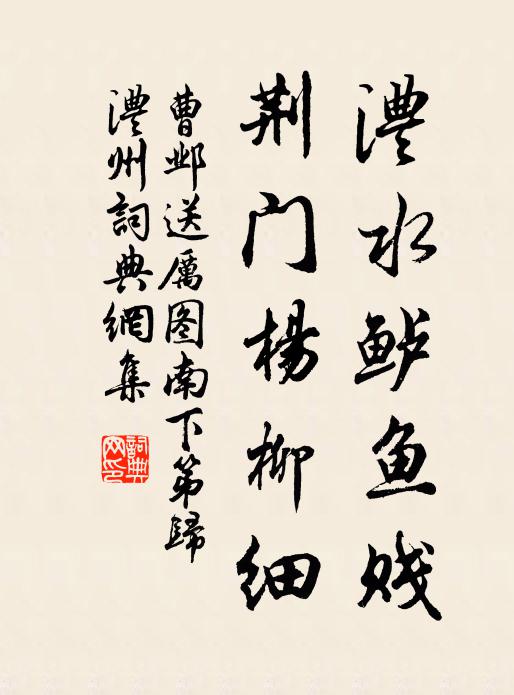 澧水鲈鱼贱
荆门杨柳细
曹邺送厲图南下第歸
澧州詞典網集
詞典网印